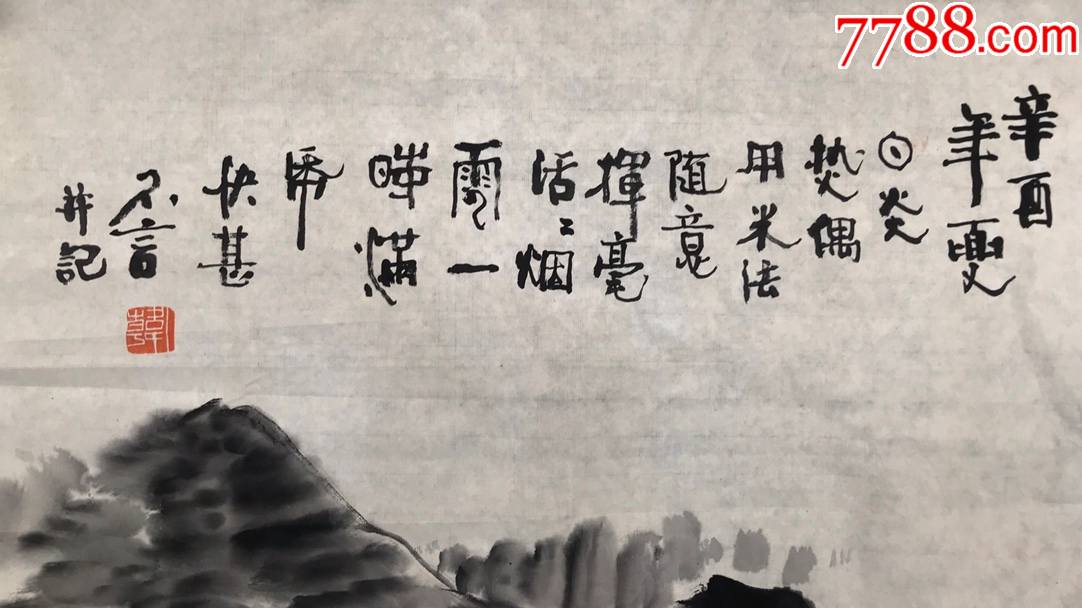 7788.com
辛酉
年夏
日炎
热偶
用米法
随意
揮毫
活〻烟
雲一
满
帋
快甚
不言
并記